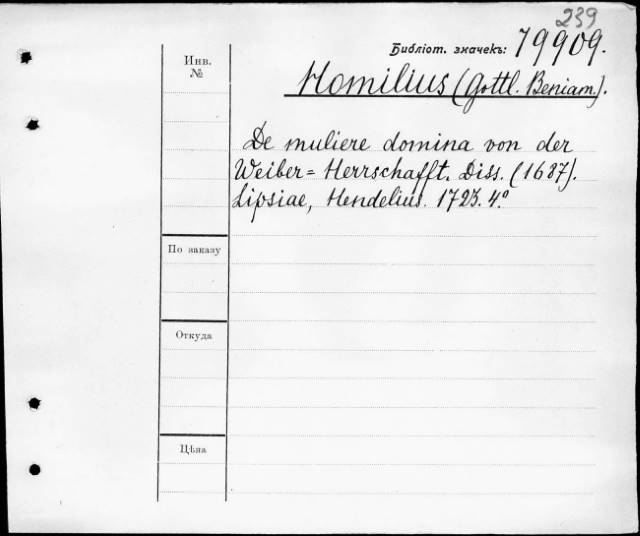 239
Библіот. значекъ: 79909.
Инв.
№
Homilius (Gottl. Beniam.).
De muliere domina von der
Weiber=Herrschafft. Diss. (1687).
Lipsiae, Hendelius. 1723. 4º
По заказу
Откуда
Цѣна